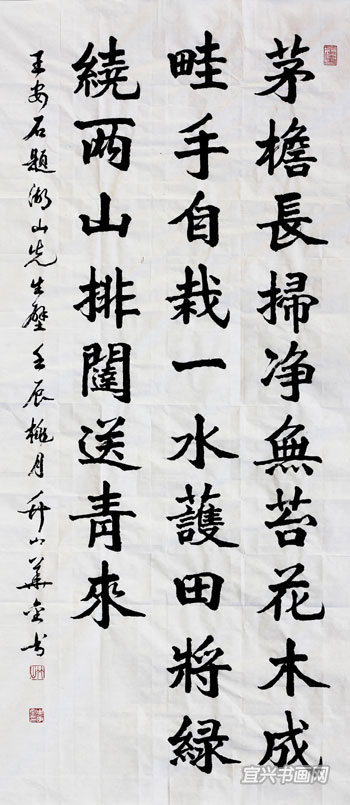 茅檐長掃净無苔花木成
畦手自栽一水護田將緑
繞兩山排闥送青來
王安石題湖山先生壁壬辰桃月
宜兴书画网